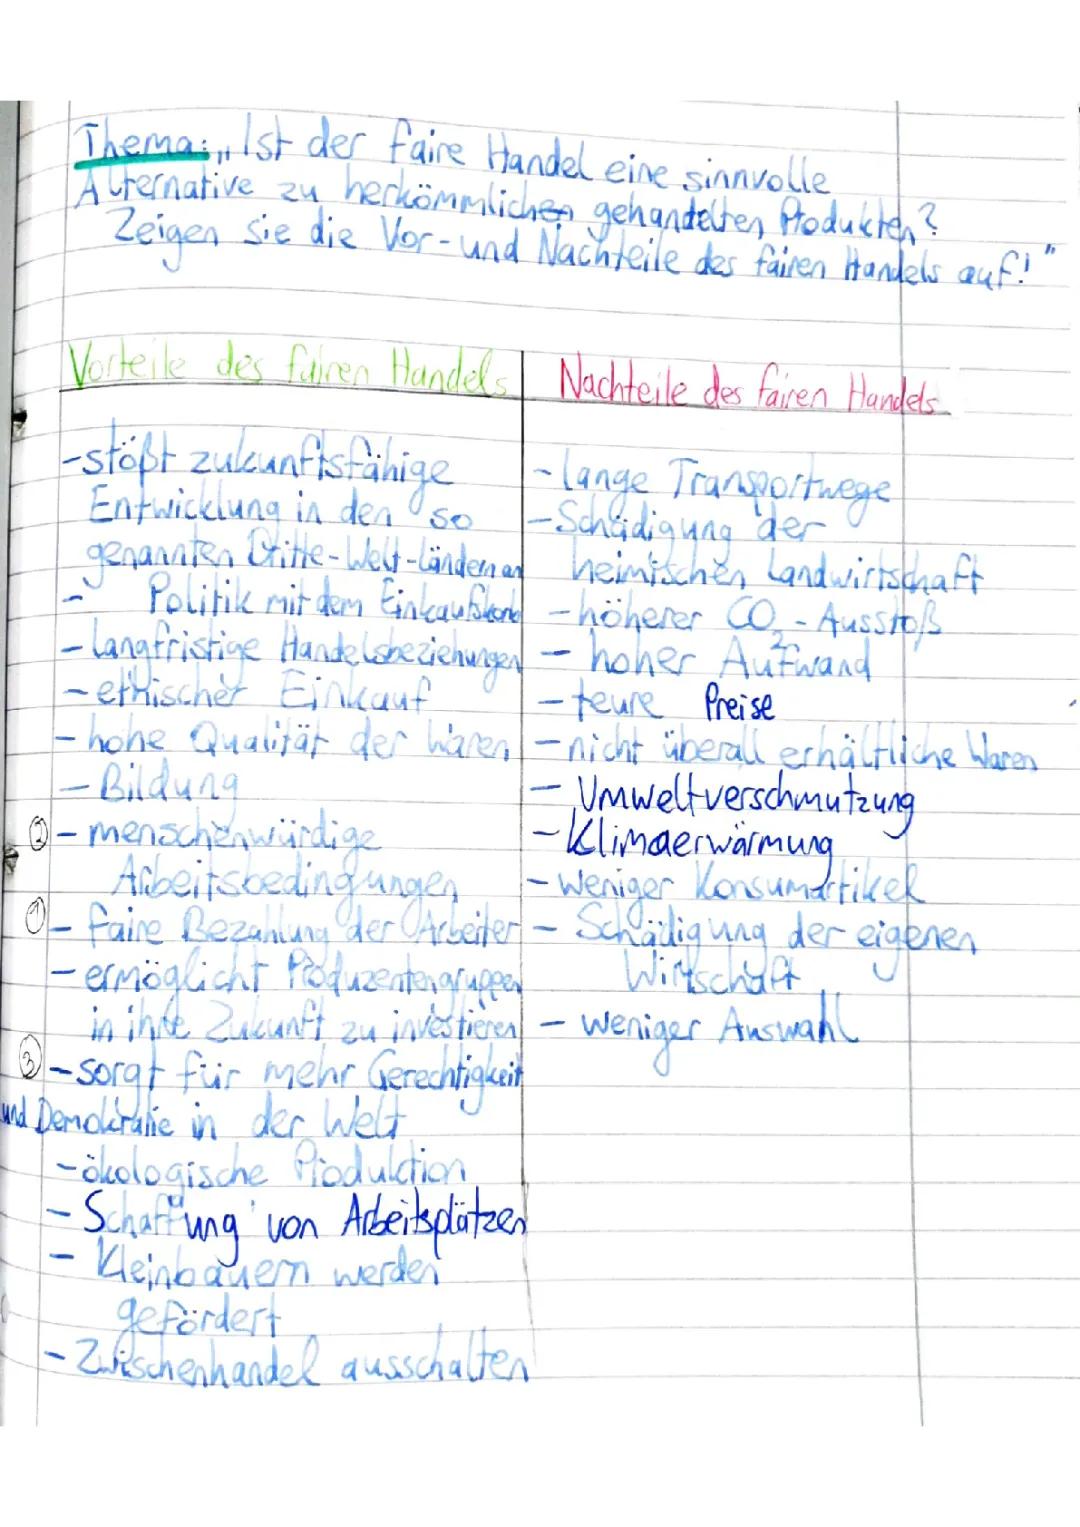 Thema: „Ist der faire Handel eine sinnvolle
Alternative zu herkömmlichen gehandelten Produkten?
Zeigen sie die Vor- und Nachteile des fairen Handels auf!"
Vorteile des fairen Handels
-stößt zukunftsfähige
Entwicklung in den so
genannten Dritte-Welt-Ländern an
- Politik mit dem Einkaufskorb
- langfristige Handelsbeziehungen
- ethischer Einkauf
- hohe Qualität der Waren
- Bildung
② - menschenwürdige
Arbeitsbedingungen
① - faire Bezahlung der Arbeiter
- ermöglicht Produzentengruppen
in ihre Zukunft zu investieren
③ - sorgt für mehr Gerechtigkeit
und Demokratie in der Welt
- ökologische Produktion
- Schaffung von Arbeitsplätzen
- Kleinbauern werden
gefördert
- Zwischenhandel ausschalten
Nachteile des fairen Handels
- lange Transportwege
- Schädigung der
heimischen Landwirtschaft
- höherer CO₂ - Ausstoß
- hoher Aufwand
- teure Preise
- nicht überall erhältliche Waren
- Umweltverschmutzung
- Klimaerwärmung
- weniger Konsumartikel
- Schädigung der eigenen
Wirtschaft
- weniger Auswahl